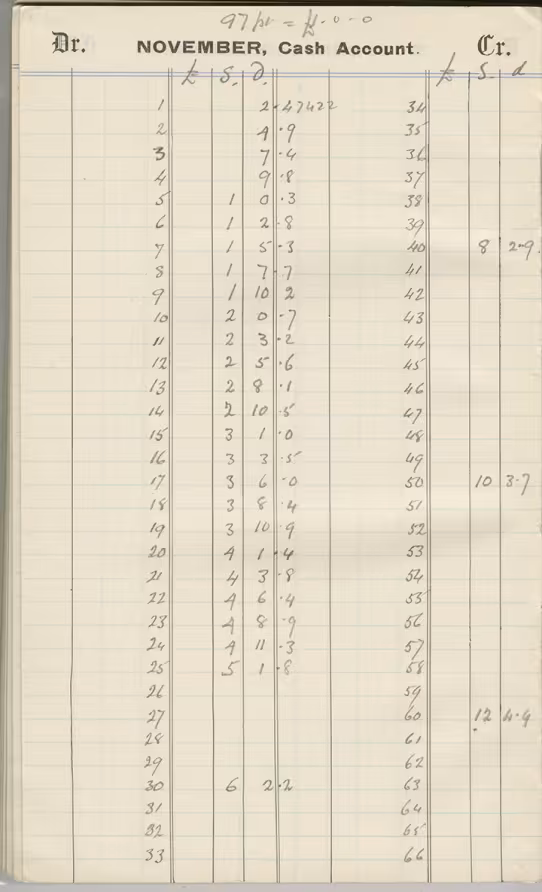 97 pt = £1-0-0
Dr. NOVEMBER, Cash Account. Cr.
£ S. D. £ S. d
1 2.47422 34
2 4.9 35
3 7.4 36
4 9.8 37
5 1 0.3 38
6 1 2.8 39
7 1 5.3 40 8 2.9.
8 1 7.7 41
9 1 10 2 42
10 2 0.7 43
11 2 3.2 44
12 2 5.6 45
13 2 8.1 46
14 2 10.5 47
15 3 1.0 48
16 3 3.5 49
17 3 6.0 50 10 3.7
18 3 8.4 51
19 3 10.9 52
20 4 1.4 53
21 4 3.8 54
22 4 6.4 55
23 4 8.9 56
24 4 11.3 57
25 5 1.8 58
26 59
27 60 12 4.4
28 61
29 62
30 6 2.2 63
31 64
32 65
33 66